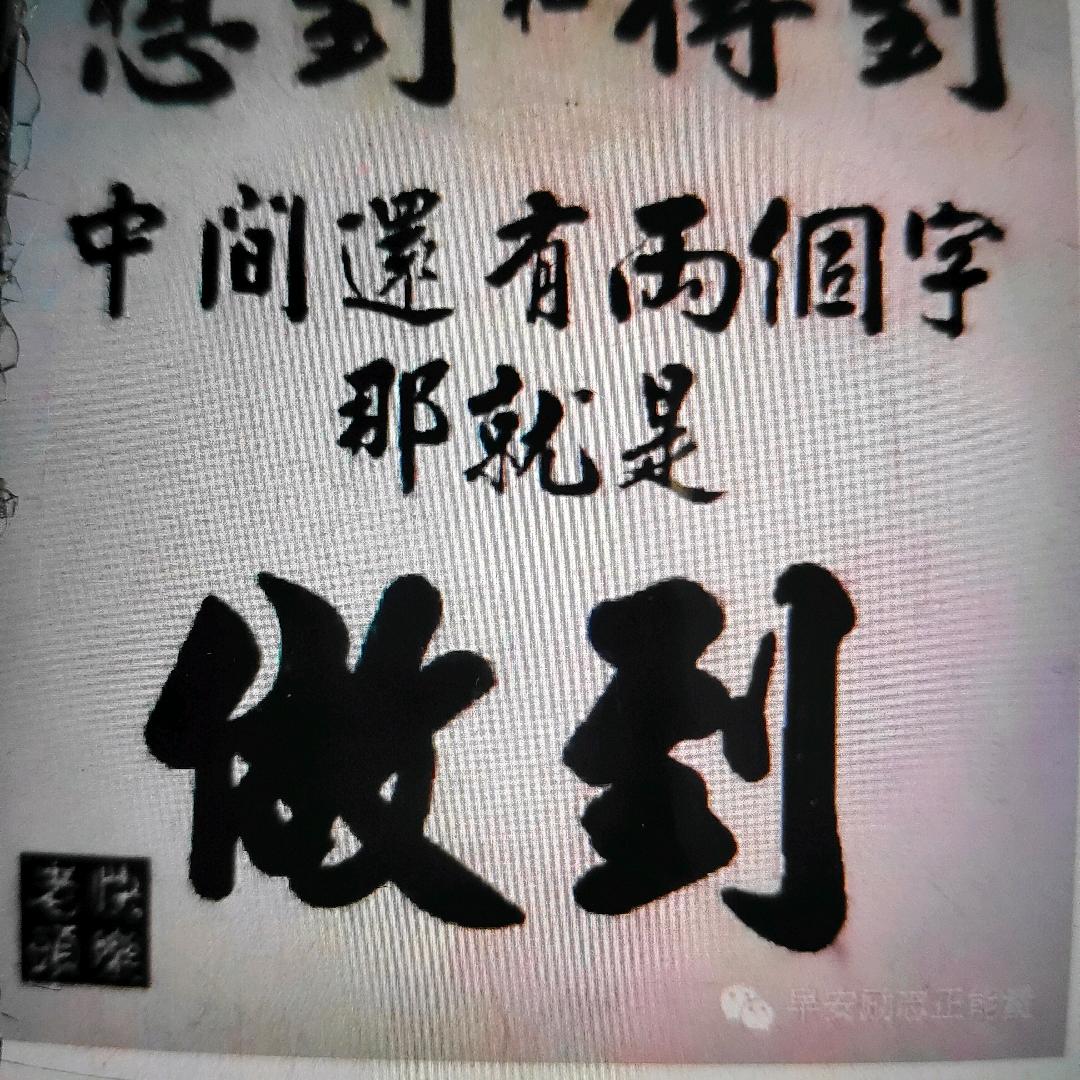 想到和得到
中間還有兩個字
那就是
做到
早安励志正能量